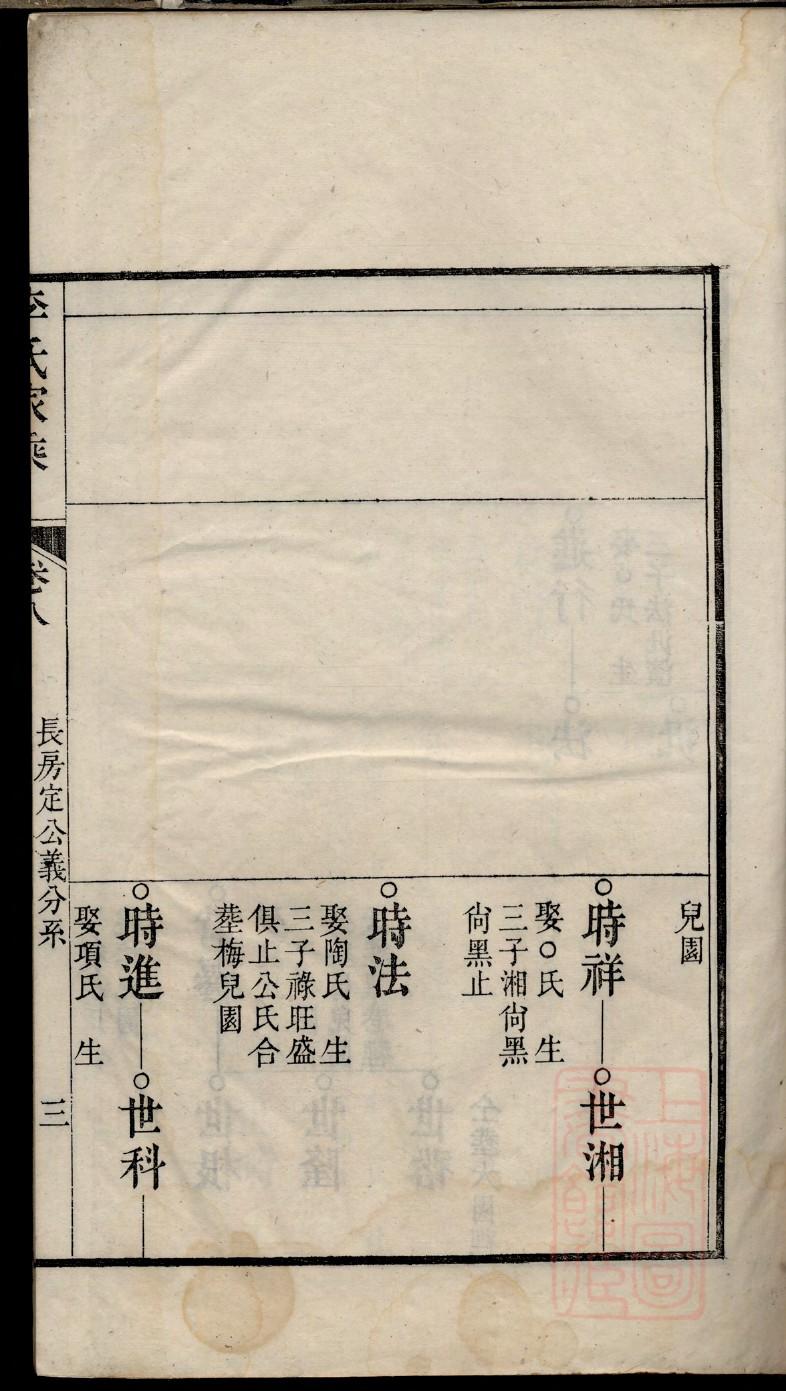 兒園
○時祥
○世湘
娶○氏 生
三子湘尙黑
尙黑止
○時法
娶陶氏 生
三子祿旺盛
俱止公氏合
塟梅兒園
○時進
○世科
娶項氏 生
氏家乘
卷八
長房定公義分系
三